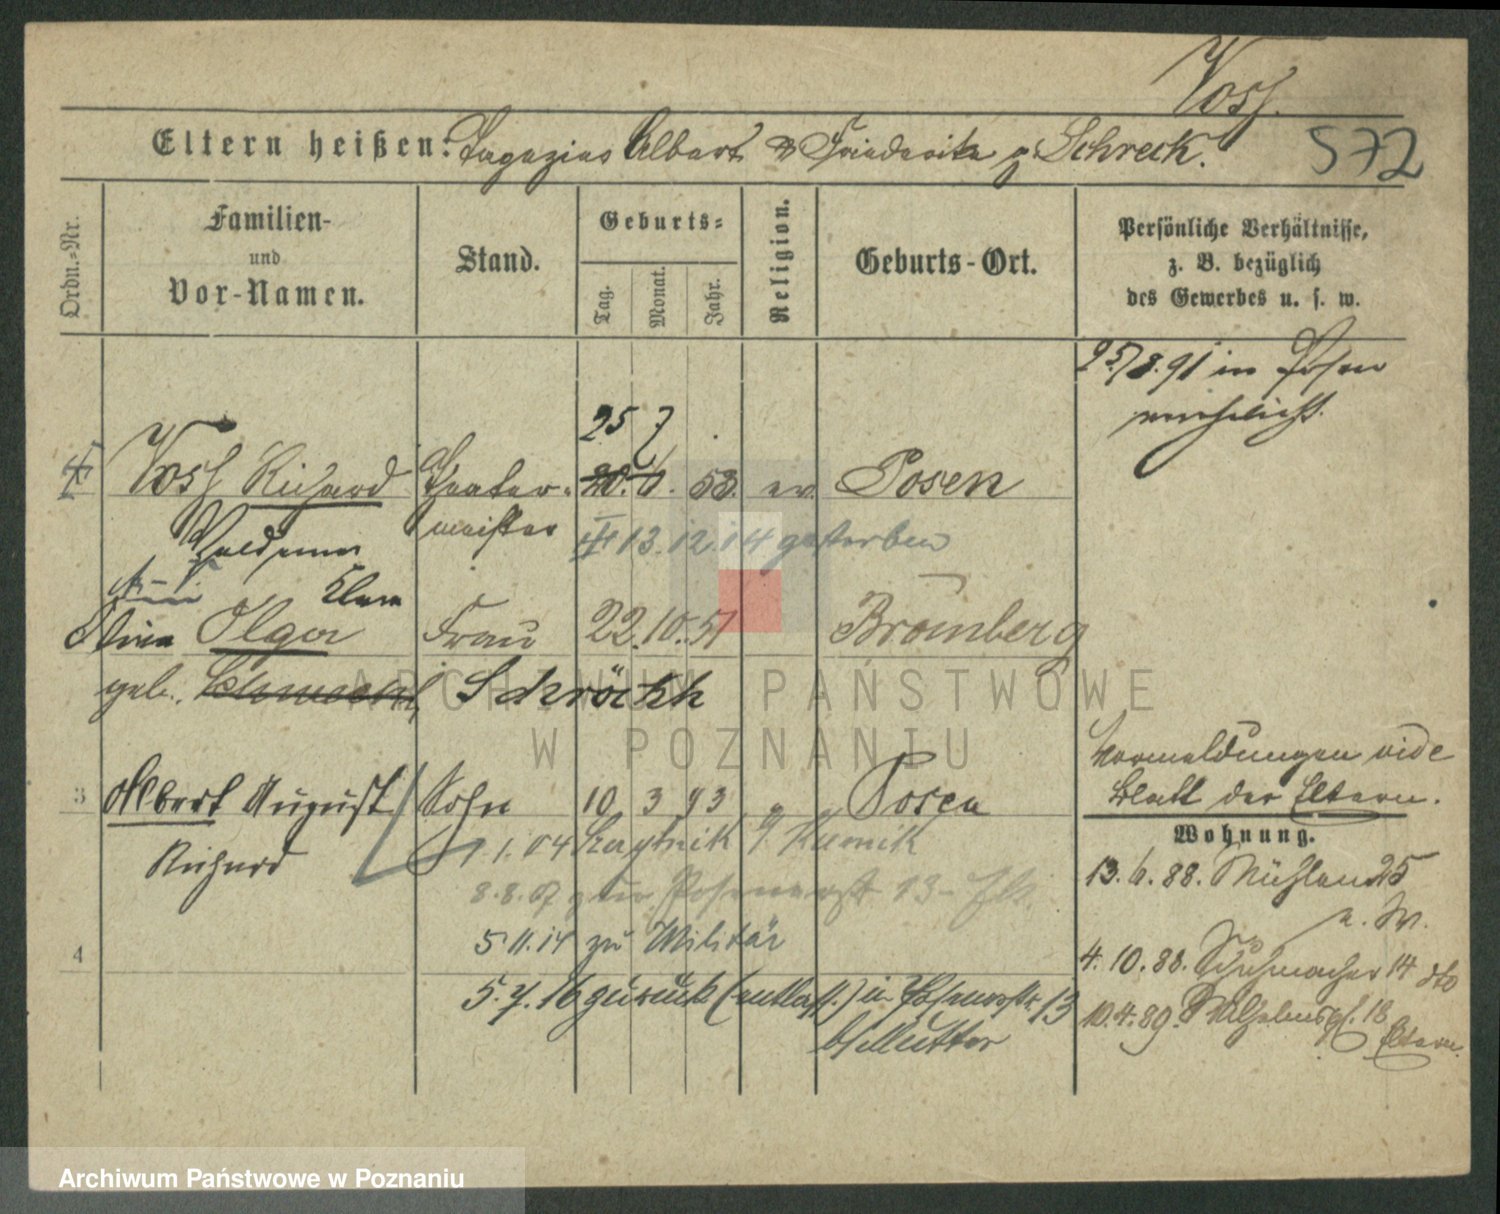 Voss.
Eltern heißen: Albert & Friederike g. Schreck.
572
Ordn.-Nr.
Familien-
und
Vor-Namen.
Stand.
Geburts-
Tag.
Monat.
Jahr.
Religion.
Geburts-Ort.
Persönliche Verhältnisse,
z. B. bezüglich
des Gewerbes u. s. w.
25/8.91 in Posen
25 7
Voss Richard Theater- 20. 6. 53. ev. Posen
meister
13.12.14 gestorben
Clara
Olga Frau 22.10.51 Bromberg
geb. Schröckh
3 Albert August Sohn 10 3 93 Posen
Richard
7.1.04
8.8.07
5.11.14 zu Militär
4
5.7.16 zurück (entlass.) in 13
b/Mutter
Vormeldungen vide
Blatt der Eltern.
Wohnung.
13.6.88. Mühlen 25
4.10.88. Schuhmacher 14 dto
10.4.89. Wilhelmspl. 18
Eltern.
ARCHIWUM PAŃSTWOWE
W POZNANIU
Archiwum Państwowe w Poznaniu